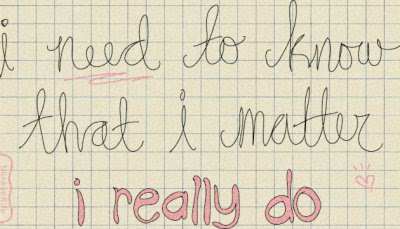 i need to know
that i matter
i really do